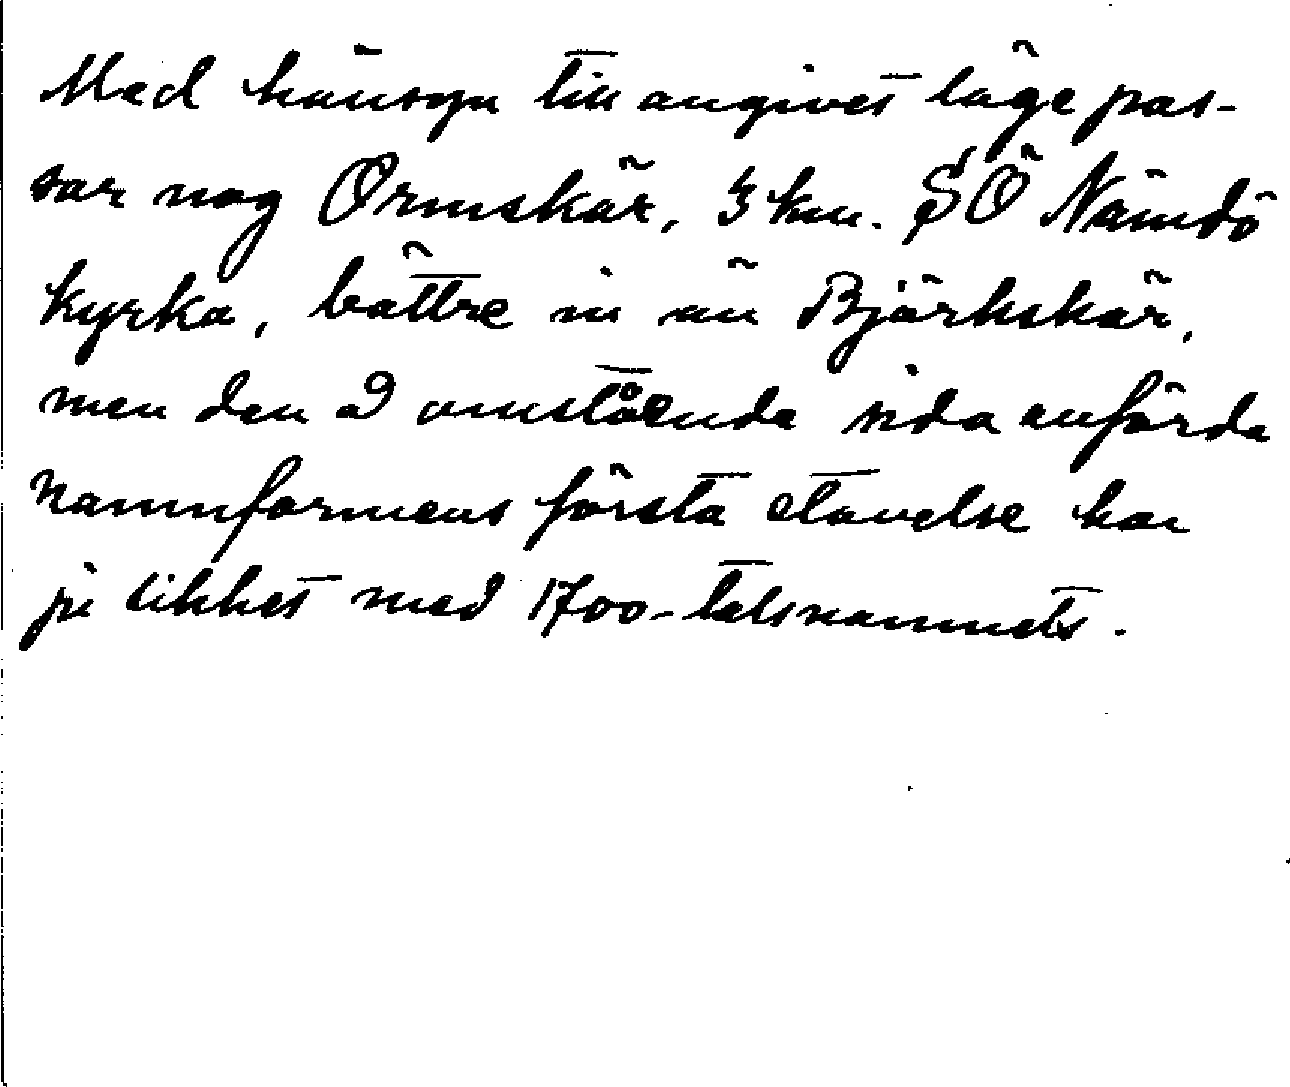 Med hänsyn till angivet läge pas-
sar nog Ormskär, 3 km. SÖ Nämdö
kyrka, bättre in än Björkskär,
men den å omstående sida anförda
namnformens första stavelse har
ju likhet med 1700-talsnamnets.